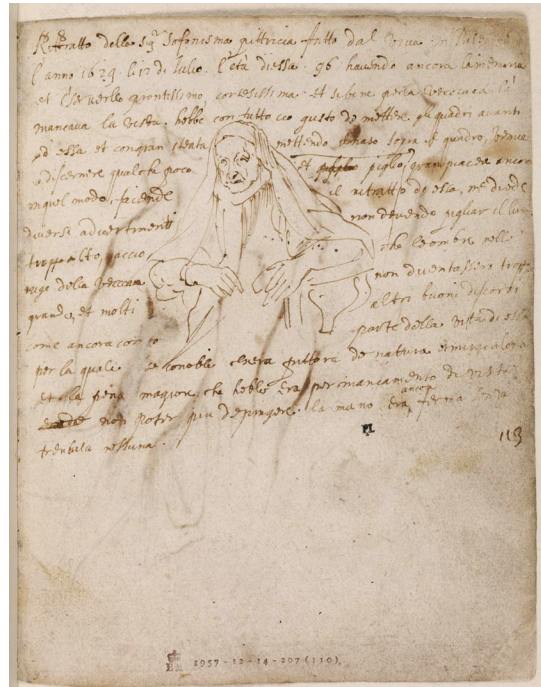 Rittratto della Sigra Sofonisma pittricia fatto dal vivo in
l'anno 1629 li 12 di Julio. l'età di essa 96 havendo ancora la memoria
et il servello prontissimo cortesissima. et sebene per la vecciaia la
mancava la vista, hebbe con tutto cio gusto de mettere gli quadri avanti
ad essa et con gran stenta mettendo il naso sopra il quadro, venne
a discernere qualche poco et piglio gran piacer ancora
in quel modo, facendo il ritratto de essa, me diede
diversi advertimenti non dovendo pigliar il lume
troppo alto, accio che le ombre nelle
ruge della vecciaia non diventassiro troppo
grande, et molti altri buoni discorsi
come ancora conto parte della vita di essa
per la quale se conobbe chera pittora de natura et miraculosa
et la pena magiore che hebbe era per mancamento di vista
non poter piu depingere. la mano era ancora ferma senza
tremula nessuna.
PL
113
BM 1957-12-14-207(110)